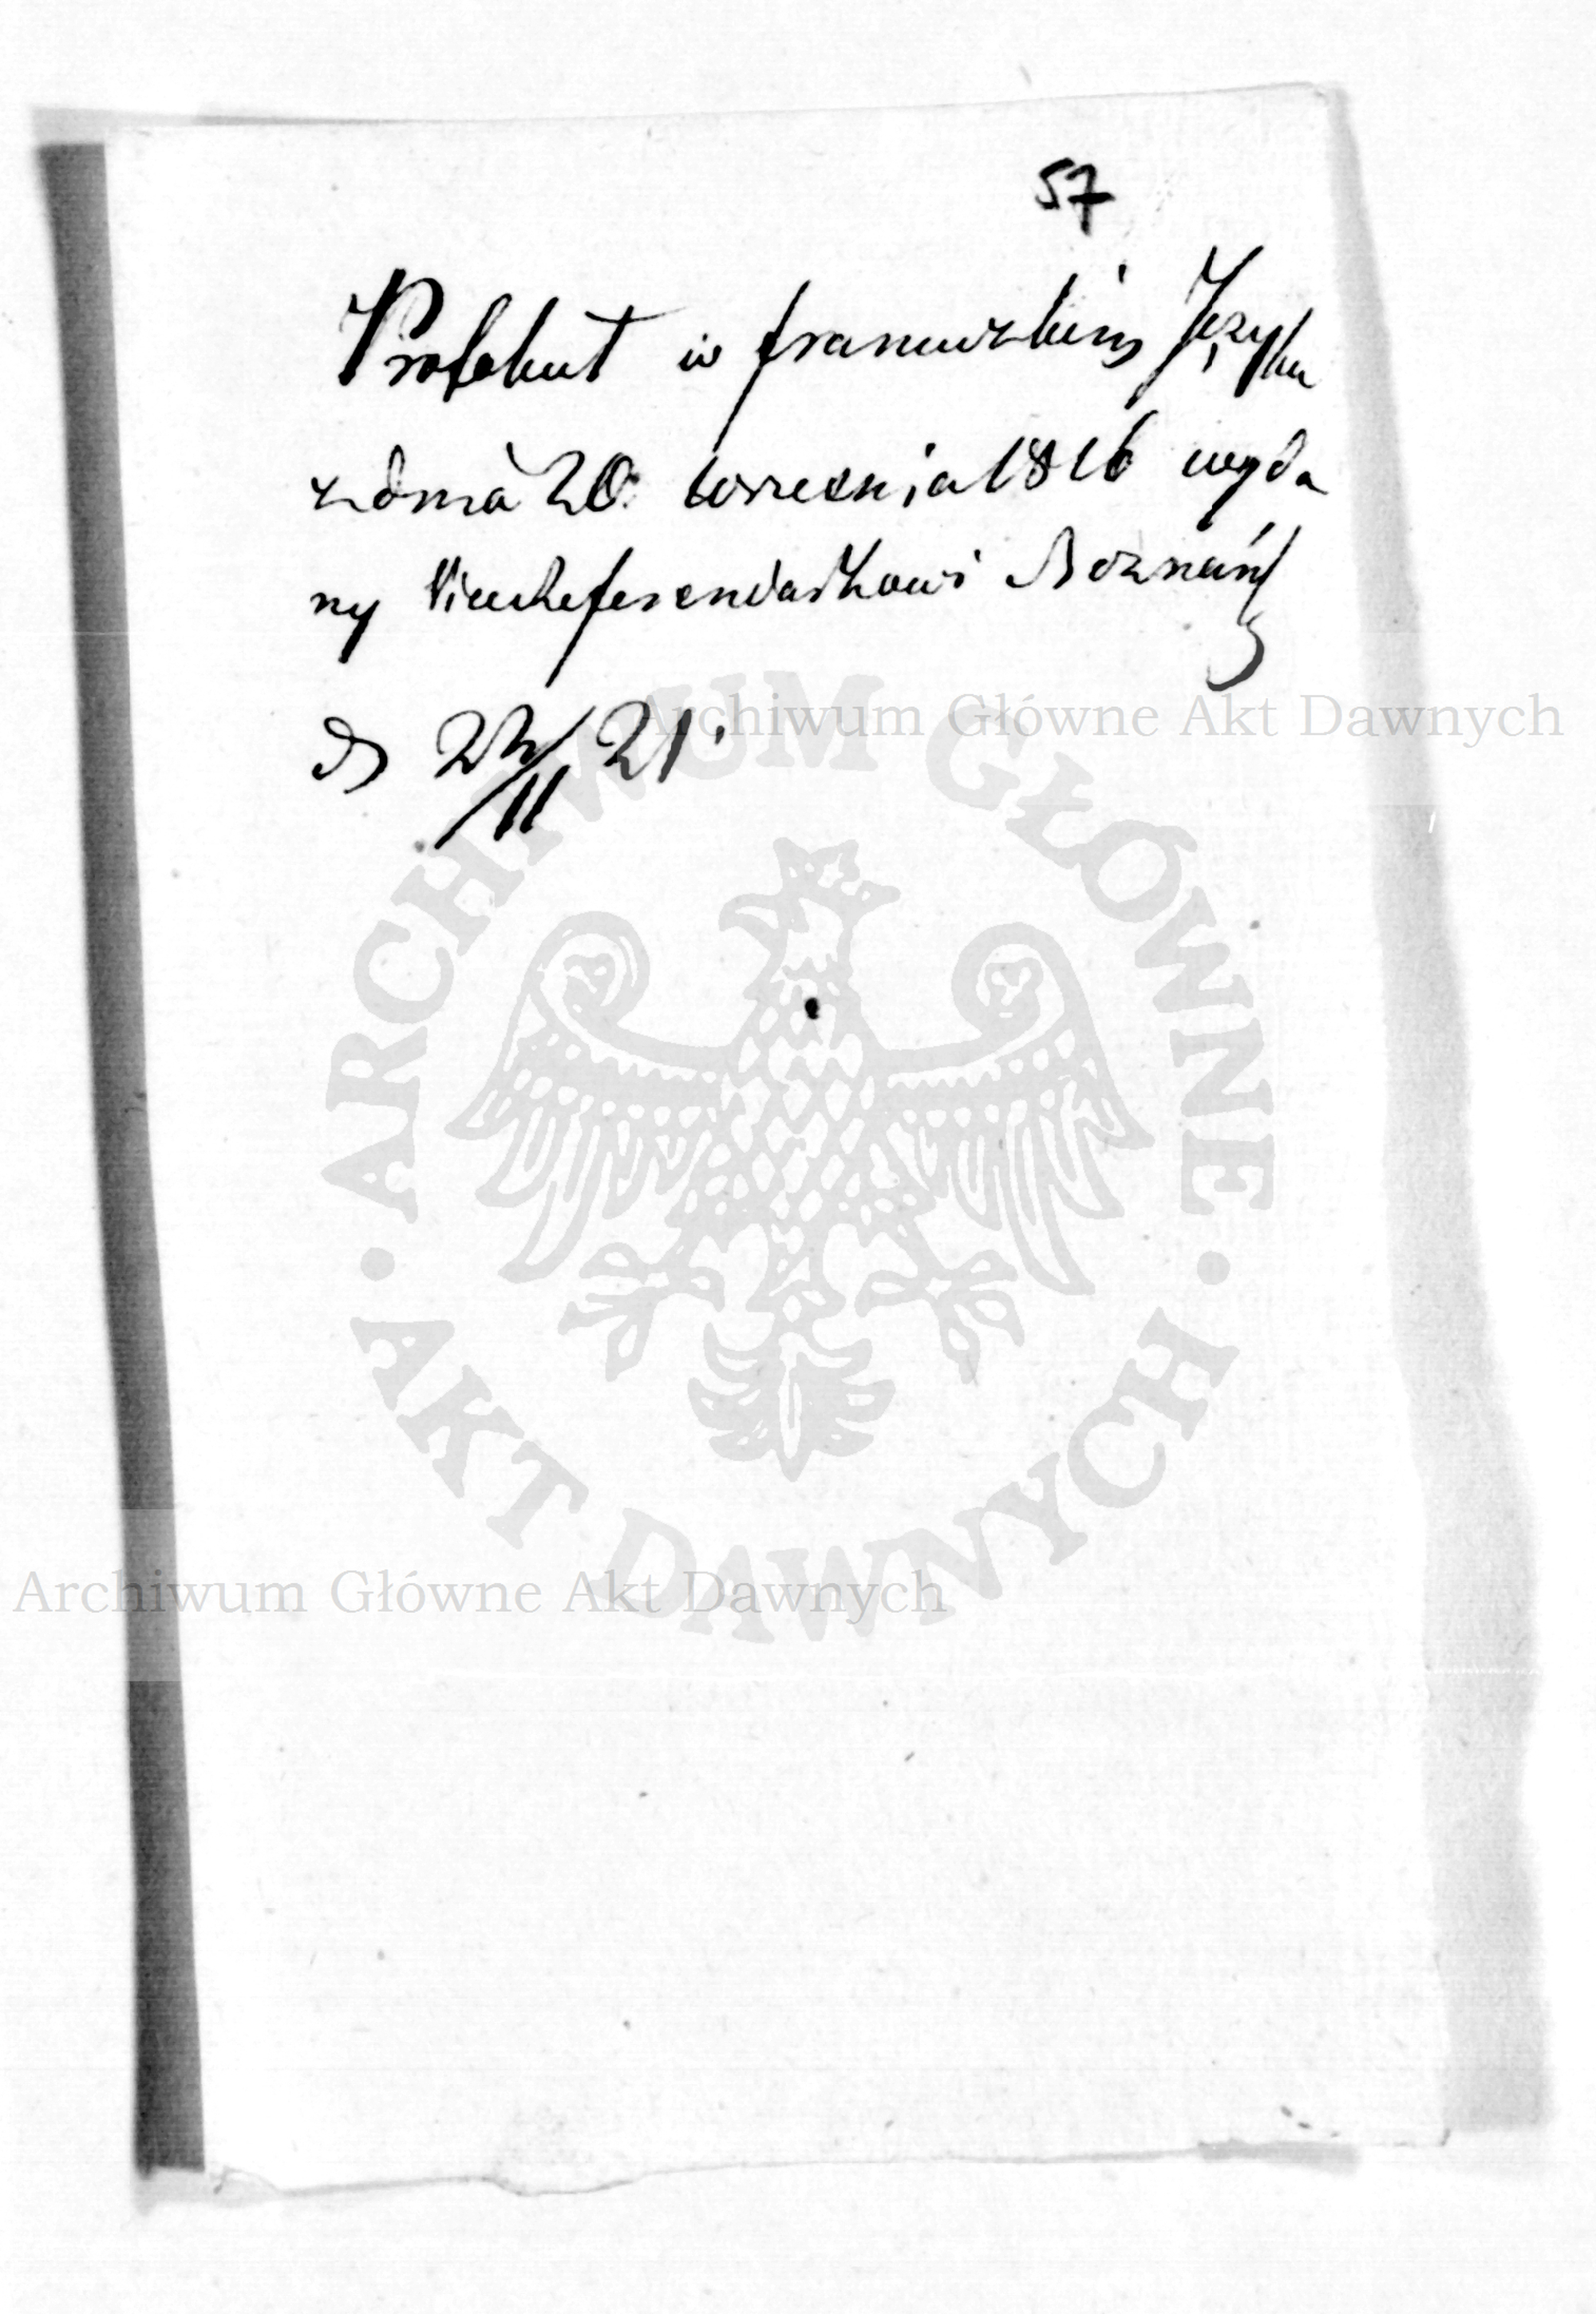 57
Protokut w francuzkim Języku
z dnia 20. Września 1816 wyda
ny Vicereferendarżowi Boznańs
d 23/11 21.
Archiwum Główne Akt Dawnych
ARCHIWUM GŁÓWNE
AKT DAWNYCH
Archiwum Główne Akt Dawnych